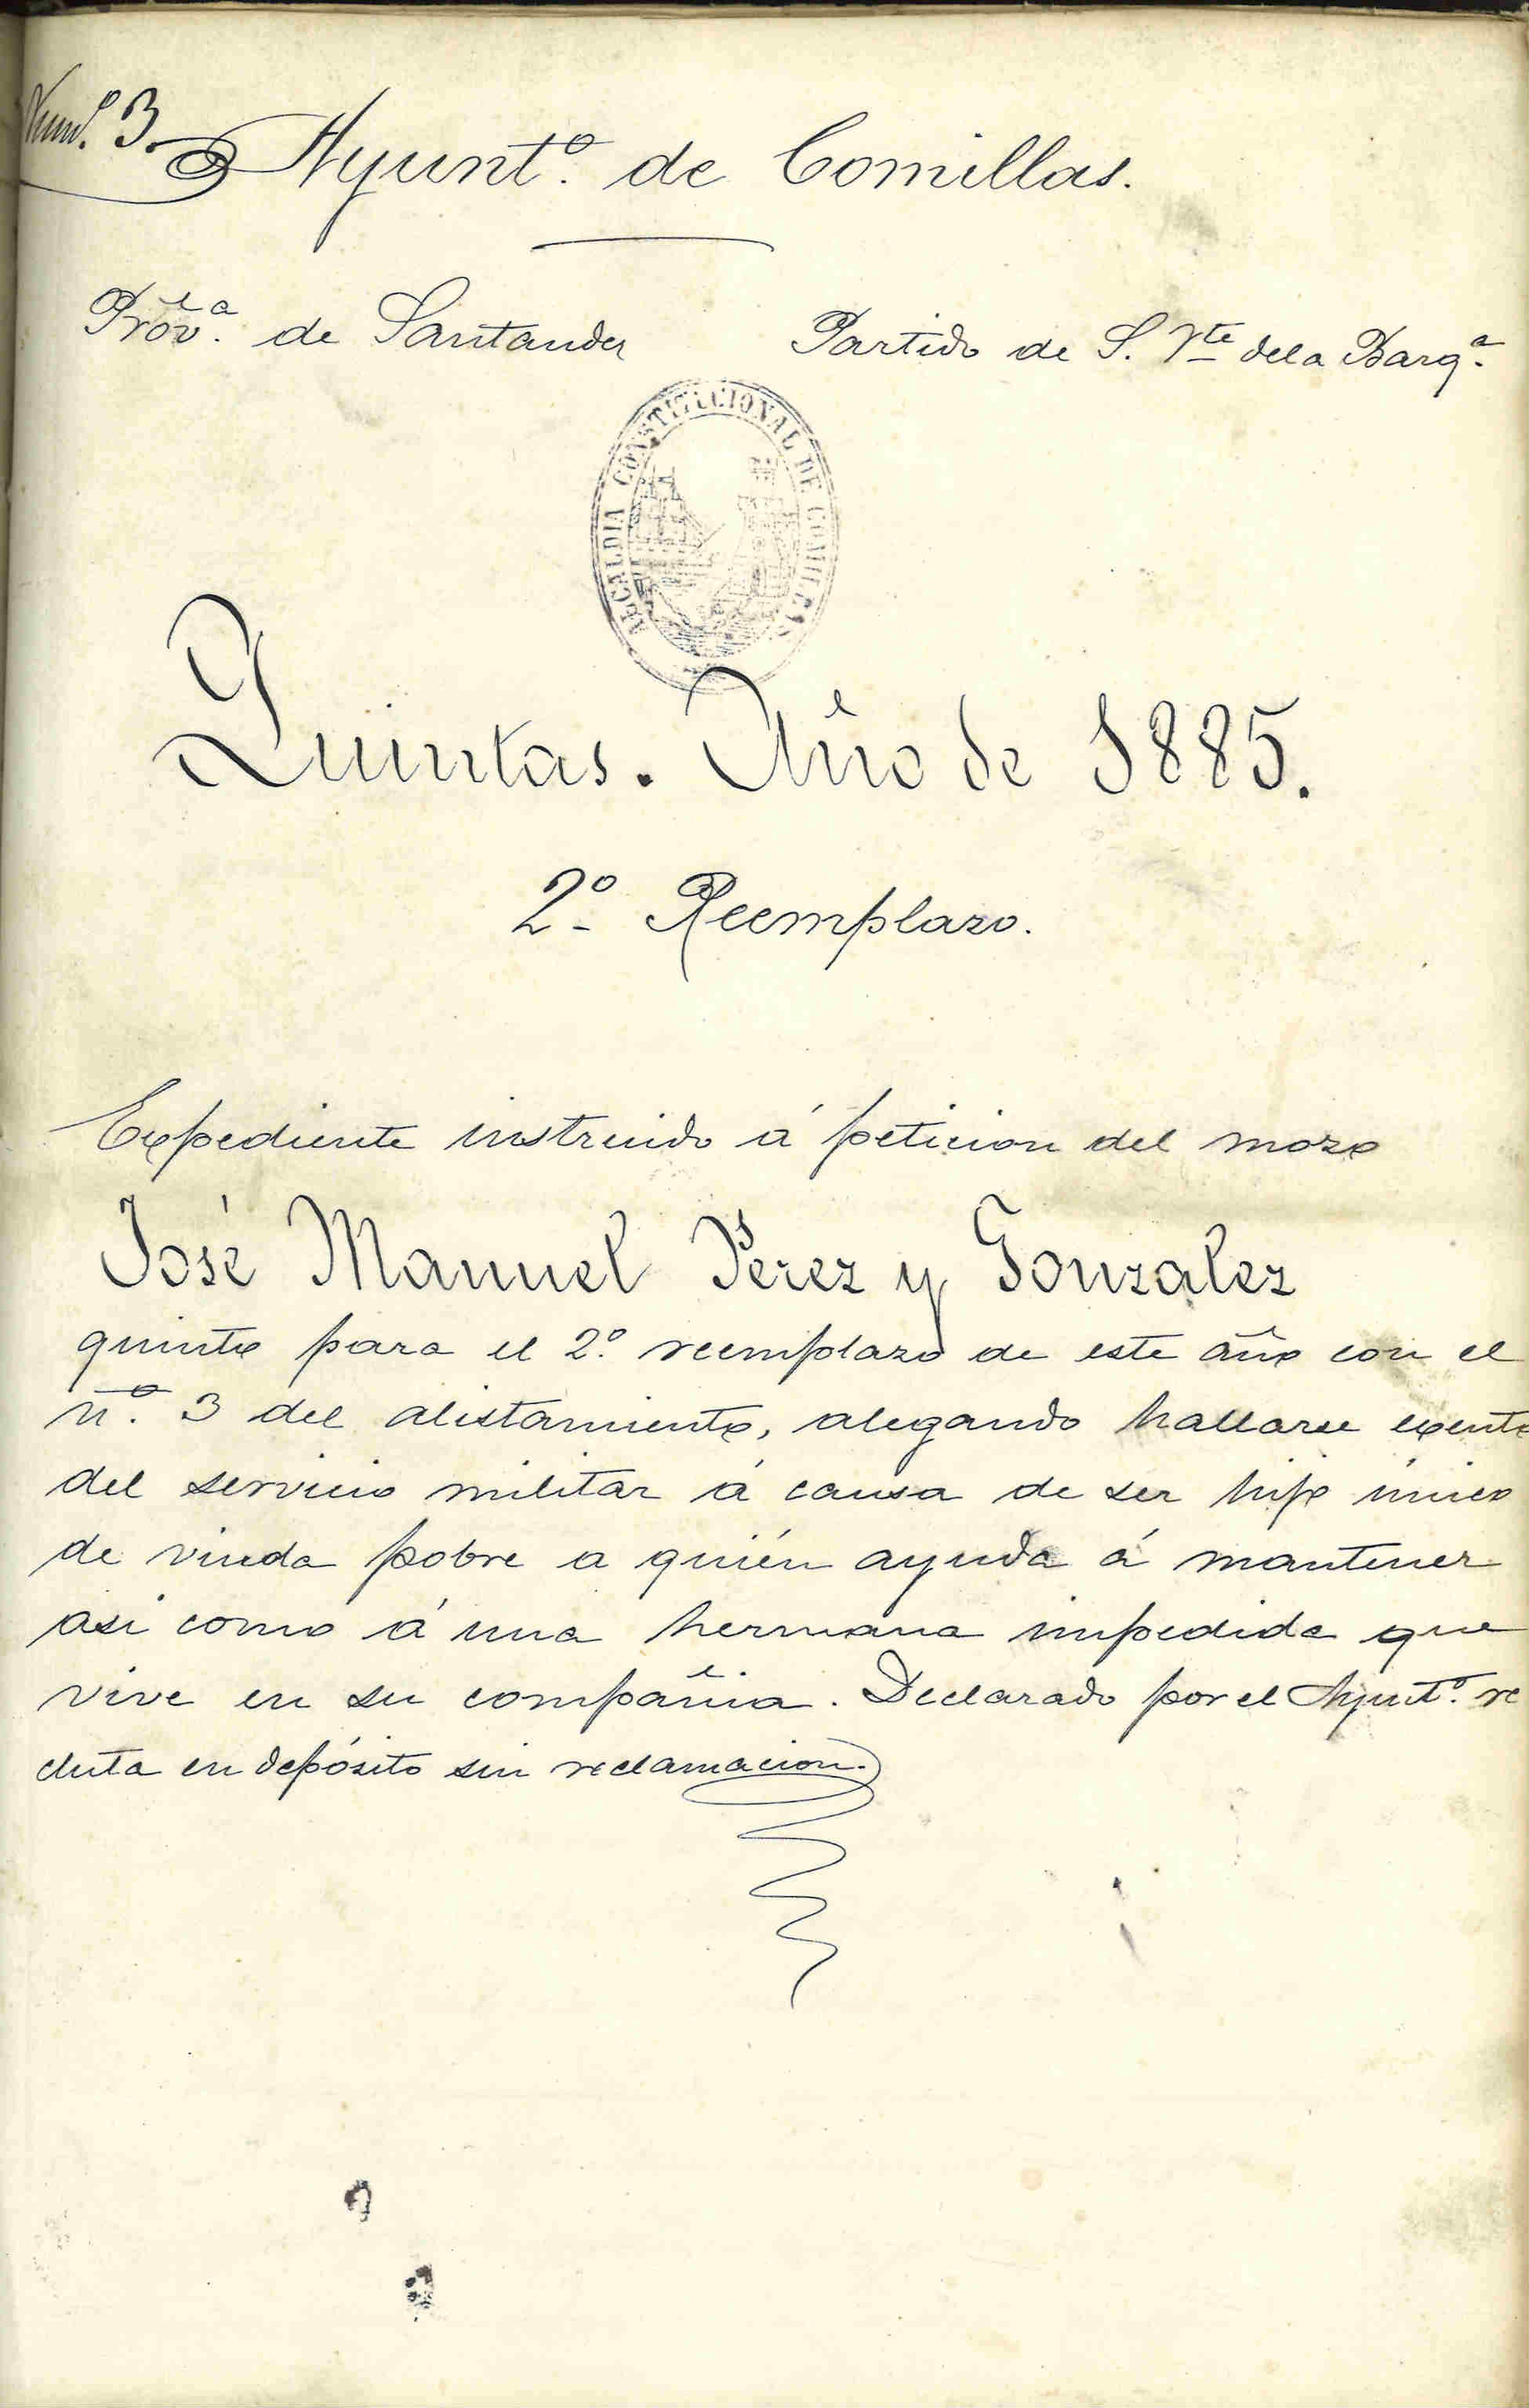 Num.º 3.
Ayunt.º de Comillas.
Prov.ª de Santander Partido de S. Vte de la Barq.ª
ALCALDIA CONSTITUCIONAL DE COMILLAS
Quintas. Año de 1885.
2.º Reemplazo.
Expediente instruido á peticion del mozo
José Manuel Perez y Gonzalez
quinto para el 2.º reemplazo de este año con el
n.º 3 del alistamiento, alegando hallarse exento
del servicio militar á causa de ser hijo único
de viuda pobre a quién ayuda á mantener
asi como á una hermana impedida que
vive en su compañia. Declarado por el Ayunt.º re
cluta en depósito sin reclamacion.